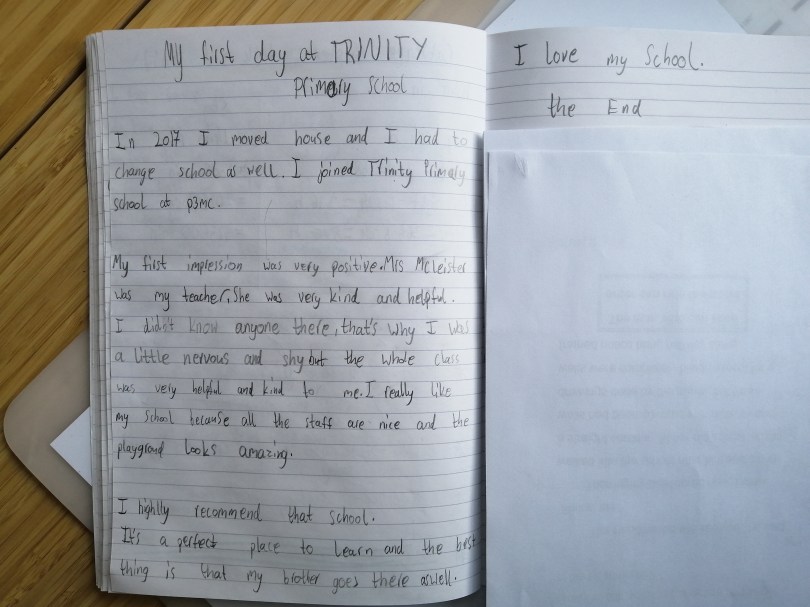 My first day at TRINITY
Primary School
In 2017 I moved house and I had to
change school as well. I joined Trinity Primary
school at p3mc.
My first impression was very positive. Mrs McLeister
was my teacher, She was very kind and helpful.
I didn't know anyone there, that's why I was
a little nervous and shy but the whole class
was very helpful and kind to me. I really like
my school because all the staff are nice and the
playground looks amazing.
I highlly recommend that school.
It's a perfect place to learn and the best
thing is that my brother goes there aswell.
I love my School.
the End